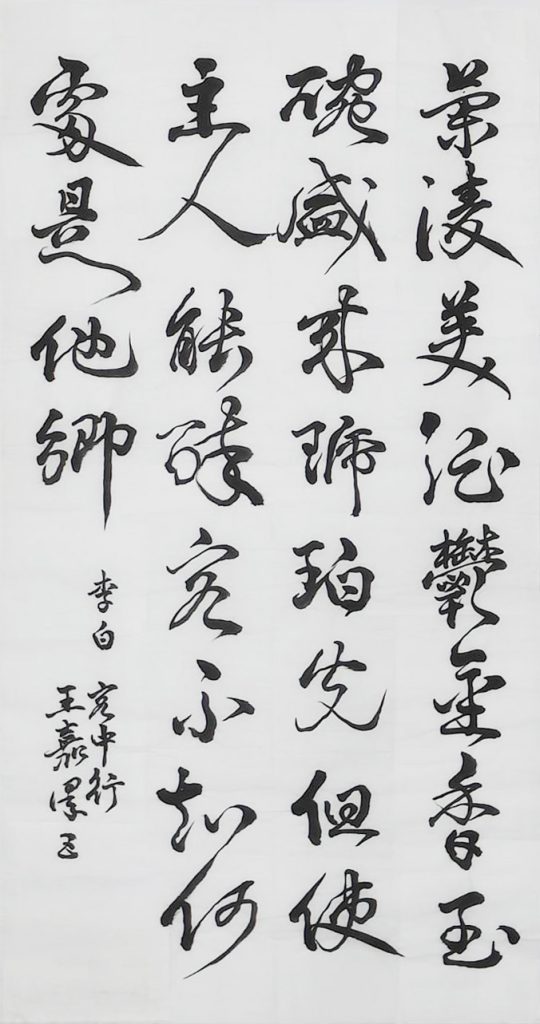 蘭陵美酒鬱金香玉
碗盛來琥珀光但使
主人能醉客不知何
處是他鄉
李白 客中行
王嘉